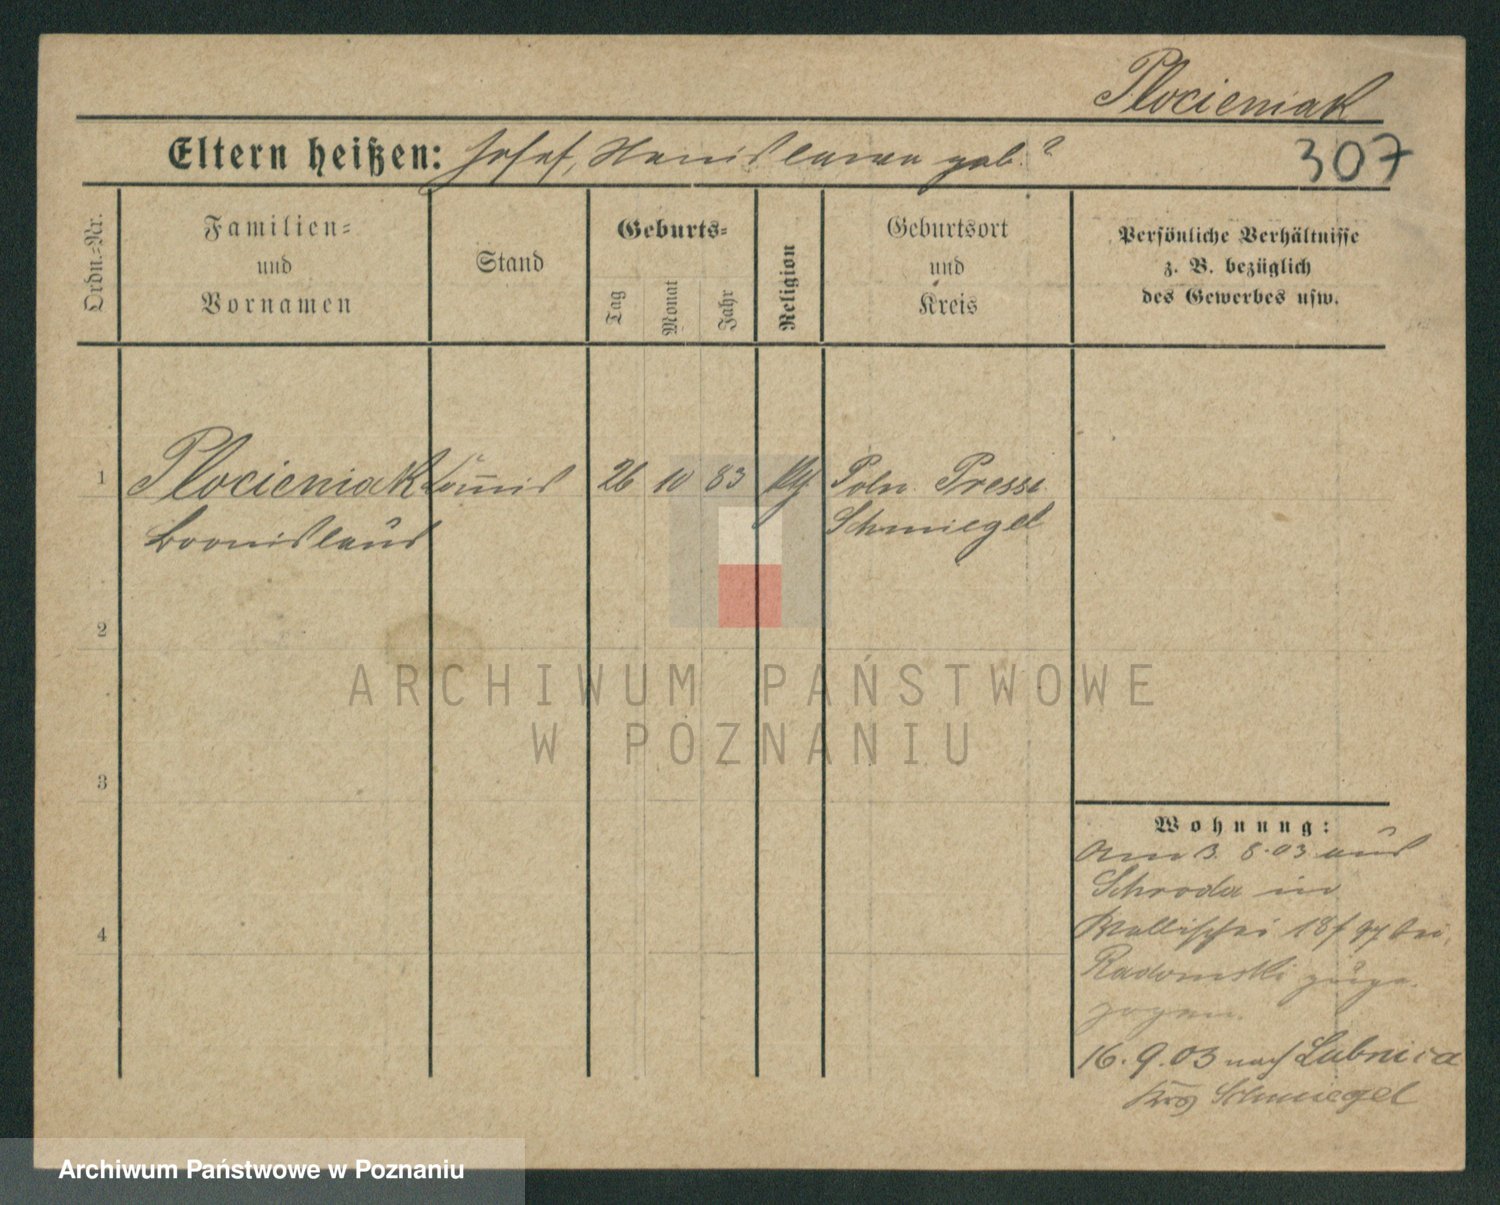 Plocieniak
Eltern heißen: Josef, Stanislawa geb. ?
307
Ordn.-Nr.
Familien-
und
Vornamen
Stand
Geburts-
Tag
Monat
Jahr
Religion
Geburtsort
und
Kreis
Persönliche Verhältnisse
z. B. bezüglich
des Gewerbes usw.
1 Plocieniak Commis 26 10 83 Poln. Presse
Bronislaus Schmiegel
2
3
4
Wohnung:
Am 3. 8. 03 aus
Schroda in
Wallischei 18 f bei
Radomski zuge-
zogen.
16. 9. 03 nach Lubnica
Krs Schmiegel
ARCHIWUM PAŃSTWOWE
W POZNANIU
Archiwum Państwowe w Poznaniu